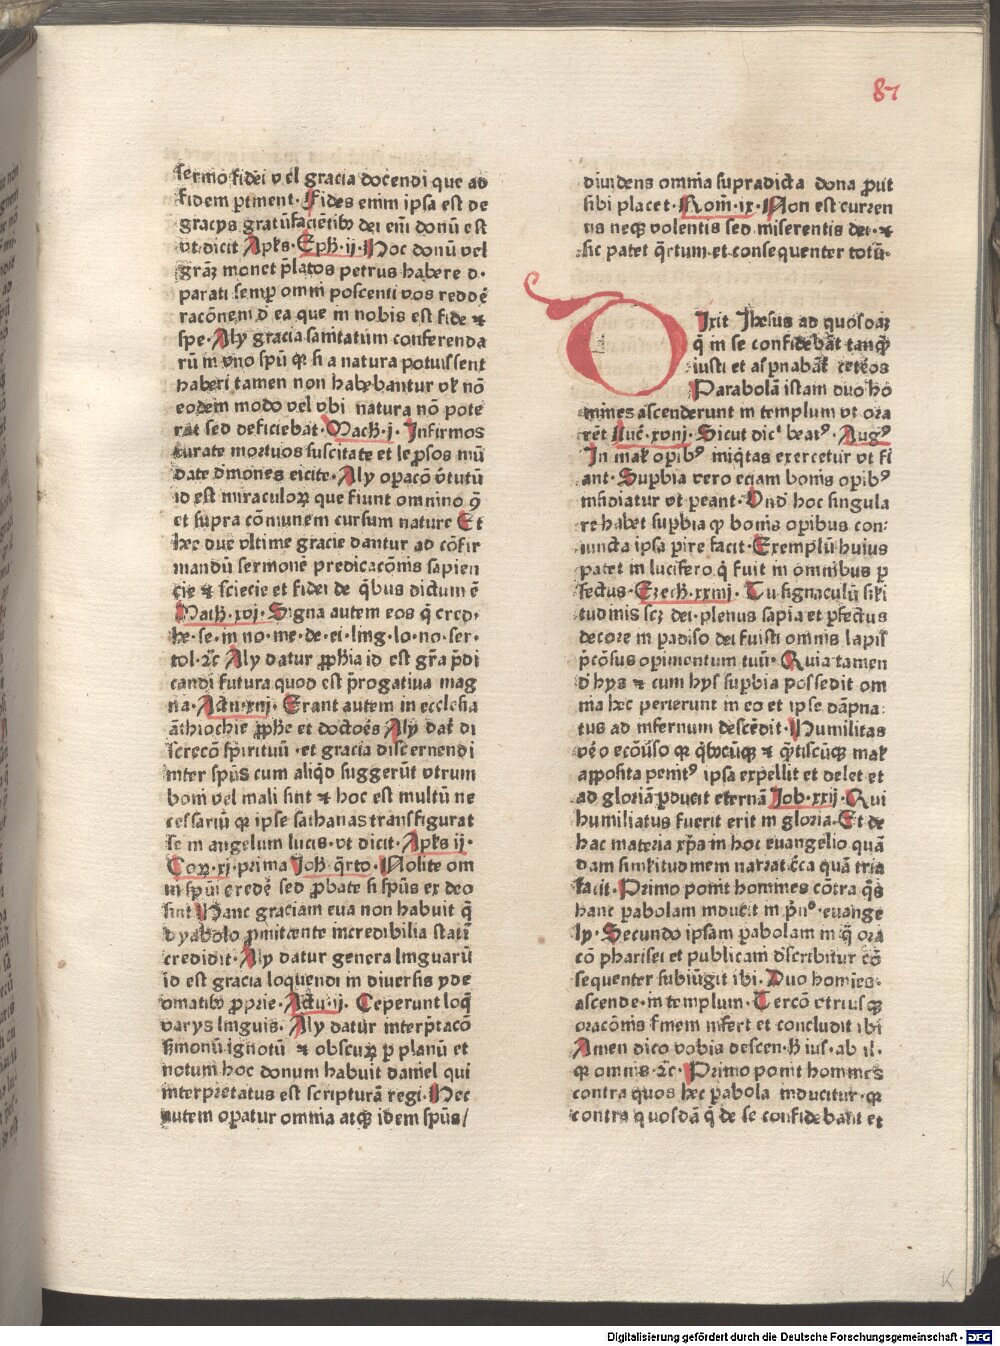 87
sermo fidei vel gracia docendi que ad
fidem ꝑtinent· Fides enim ipsa est de
gracijs gratūfacientibꝰ dei enī donū est
vt dicit Apl̄s·Eph̄·ij·Hoc donū vel
grāȝ monet p̄latos petrus habere d·
parati semꝑ omni poscenti vos reddē
racōnem d̄ ea que in nobis est fide ⁊
spe·Alij gracia sanitatum conferenda
rū in vno spū qꝛ si a natura potuissent
haberi tamen non habebantur vl̄ nō
eodem modo vel vbi natura nō pote
rat sed deficiebat·Math̄·x·Infirmos
curate mortuos suscitate et leprosos mū
date demones eicite·Alij oꝑacō v̄tutū
id est miraculoꝝ que fiunt omnino ꝯ
et supra cōmunem cursum nature Et
hec due vltime gracie dantur ad cōfir
mandū sermonē predicacōnis sapien
cie ⁊ sciecie et fidei de q̄bus dictum ē
Math̄·xvi·Signa autem eos q̄ cred·
he·se·in no·me·de·ei·ling·lo·no·ser·
tol·⁊c̄ Alij datur ꝓph̄ia id est grā p̄di
candi futura quod est p̄rogatiua mag
na·Actū·xiij·Erant autem in ecclesia
āthiochie ꝓph̄e et doctoēs Alij dat̄ di
screcō sp̄irituū·et gracia discernendi
inter spūs cum aliq̄d suggerūt vtrum
boni vel mali sint ⁊ hoc est multū ne
cessariū qꝛ ipse sathanas transfigurat
se in angelum lucis·vt dicit·Apl̄s ij·
Coꝝ·xi·prima Joh̄ q̄rto·Nolite om
ni spūi credē sed ꝓbate si spūs ex deo
sint Hanc graciam eua non habuit q̄
dyabolo ꝓmittente incredibilia statī
credidit·Alij datur genera linguarū
id est gracia loquendi in diuersis yde
omatibꝰ ꝓprie·Actū·ij·Ceperunt loq̄
varijs linguis·Alij datur interp̄tacō
s̄monū ignotū ⁊ obscuꝝ ꝑ planū et
notum hoc donum habuit daniel qui
interpretatus est scripturā regi·Hec
autem oꝑatur omnia atqꝫ idem spūs/
diuidens omnia supradicta dona ꝓut
sibi placet·Rom̄·ix·Non est curren
tis neqꝫ volentis sed miserentis dei·⁊
sic patet q̄rtum·et consequenter totū·
Dixit Jhesus ad quosdaȝ
q̄ in se confidebāt tanqꝫ
iusti et asꝑnabāt ceteos
Parabolā istam duo ho
mines ascenderunt in templum vt ora
rēt Luc̄·xviij·Sicut dic̄ beatꝰ·Augꝰ
In mal̄ oꝑibꝰ iniq̄tas exercetur vt fi
ant·Suꝑbia vero eciam bonis oꝑibꝰ
insidiatur vt ꝑeant·Vnd̄ hoc singula
re habet suꝑbia qꝫ bonis oꝑibus con·
iuncta ipsa ꝑire facit·Exemplū huius
patet in lucifero q̄ fuit in omnibus ꝑ
fectus·Ezech̄·xxviij·Tu signaculū sil̄i
tudinis scȝ dei·plenus sapīa et ꝑfectus
decore in padiso dei fuisti omnis lapis
p̄cōsus oꝑimentum tuū·Quia tamen
d̄ hijs ⁊ cum hijs suꝑbia possedit om
nia hec ꝑierunt in eo et ipse dāpna:
tus ad infernum descēdit·Humilitas
vēo ecōūso qꝛ q̄bꝰcūqꝫ ⁊ q̄tiscūqꝫ mal̄
apposita penitꝰ ipsa expellit et delet et
ad gloriā ꝓducit eternā Job·xxij·Qui
humiliatus fuerit erit in gloria·Et de
hac materia xp̄s in hoc euangelio quā
dam similitudinem narrat c̄ca quā tria
facit·Primo ponit homines cōtra q̄s
hanc ꝑabolam inducit in p̄nº·euange
ly·Secundo ipsam ꝑabolam in q̄ ora
cō pharisei et publicani d̄scribitur cō
sequenter subiūgit ibi·Duo homies·
ascende·in templum·Tercō vtriusqꝫ
oracōnis finem infert et concludit ibi
Amen dico vobis descen·h̄ ius·ab il·
qꝛ omnis·⁊c̄·Primo ponit homines
contra quos hec ꝑabola inducitur·qꝛ
contra quosdā q̄ de se confidebant et
K
Digitalisierung gefördert durch die Deutsche Forschungsgemeinschaft - DFG